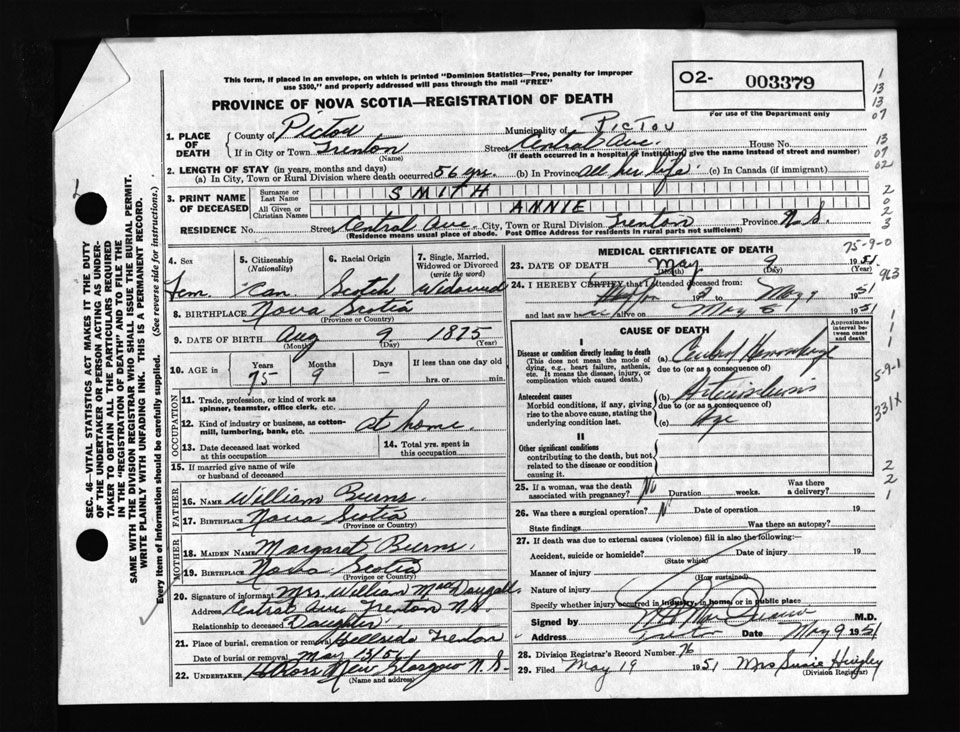 This form, if placed in an envelope, on which is printed "Dominion Statistics—Free, penalty for improper
use $300," and properly addressed will pass through the mail "FREE"
PROVINCE OF NOVA SCOTIA—REGISTRATION OF DEATH
O2- 003379
For use of the Department only
1. PLACE OF DEATH County of Pictou Municipality of PICTOU
If in City or Town Trenton (Name) Street Central Ave. House No.
(If death occurred in a hospital or institution, give the name instead of street and number)
2. LENGTH OF STAY (in years, months and days)
(a) In City, Town or Rural Division where death occurred 56 yrs. (b) In Province all her life (c) In Canada (if immigrant)
3. PRINT NAME OF DECEASED Surname or Last Name SMITH
All Given or Christian Names ANNIE
RESIDENCE No. Street Central Ave. City, Town or Rural Division Trenton Province N.S.
(Residence means usual place of abode. Post Office Address for residents in rural parts not sufficient)
4. Sex Fem.
5. Citizenship (Nationality) Can.
6. Racial Origin Scotch
7. Single, Married, Widowed or Divorced (write the word) Widowed
8. BIRTHPLACE Nova Scotia
(Province or Country)
9. DATE OF BIRTH Aug 9 1875
(Month) (Day) (Year)
10. AGE in Years 75 Months 9 Days — If less than one day old
hrs. or min.
OCCUPATION
11. Trade, profession, or kind of work as
spinner, teamster, office clerk, etc.
12. Kind of industry or business, as cotton-
mill, lumbering, bank, etc. at home.
13. Date deceased last worked
at this occupation
14. Total yrs. spent in
this occupation
15. If married give name of wife
or husband of deceased
FATHER
16. NAME William Burns.
17. BIRTHPLACE Nova Scotia
(Province or Country)
MOTHER
18. MAIDEN NAME Margaret Burns.
19. BIRTHPLACE Nova Scotia
(Province or Country)
20. Signature of informant Mrs. William MacDougall
Address Central Ave. Trenton N.S.
Relationship to deceased Daughter
21. Place of burial, cremation or removal Hillside Trenton
Date of burial or removal May 13/51
22. UNDERTAKER New Glasgow N.S.
(Name and address)
MEDICAL CERTIFICATE OF DEATH
23. DATE OF DEATH May 9 1951
(Month) (Day) (Year)
24. I HEREBY CERTIFY that I attended deceased from:
May 1951
and last saw h alive on May 1951
CAUSE OF DEATH
Approximate interval between onset and death
I
Disease or condition directly leading to death
(This does not mean the mode of dying, e.g., heart failure, asthenia, etc. It means the disease, injury, or complication which caused death.)
(a) Cerebral Hemorrhage
due to (or as a consequence of)
Antecedent causes
Morbid conditions, if any, giving rise to the above cause, stating the underlying condition last.
(b)
due to (or as a consequence of)
(c) Age
II
Other significant conditions
contributing to the death, but not related to the disease or condition causing it.
25. If a woman, was the death
associated with pregnancy? No Duration weeks. Was there
a delivery?
26. Was there a surgical operation? N Date of operation 19
State findings Was there an autopsy?
27. If death was due to external causes (violence) fill in also the following:—
Accident, suicide or homicide? Date of injury 19
(State which)
Manner of injury
(How sustained)
Nature of injury
Specify whether injury occurred in industry, in home or in public place
Signed by M.D.
Address Date May 9 1951
28. Division Registrar's Record Number 76
29. Filed May 19 1951 Mrs Susie
(Division Registrar)
SEC. 46—VITAL STATISTICS ACT MAKES IT THE DUTY
OF THE UNDERTAKER OR PERSON ACTING AS UNDER-
TAKER TO OBTAIN ALL THE PARTICULARS REQUIRED
IN THE "REGISTRATION OF DEATH" AND TO FILE THE
SAME WITH THE DIVISION REGISTRAR WHO SHALL ISSUE THE BURIAL PERMIT.
WRITE PLAINLY WITH UNFADING INK. THIS IS A PERMANENT RECORD.
Every item of information should be carefully supplied. (See reverse side for instructions.)
1
13
13
07
13
07
02
2
0
2
3
75-9-0
963
1
1
1
5-9-1
331X
2
2
1